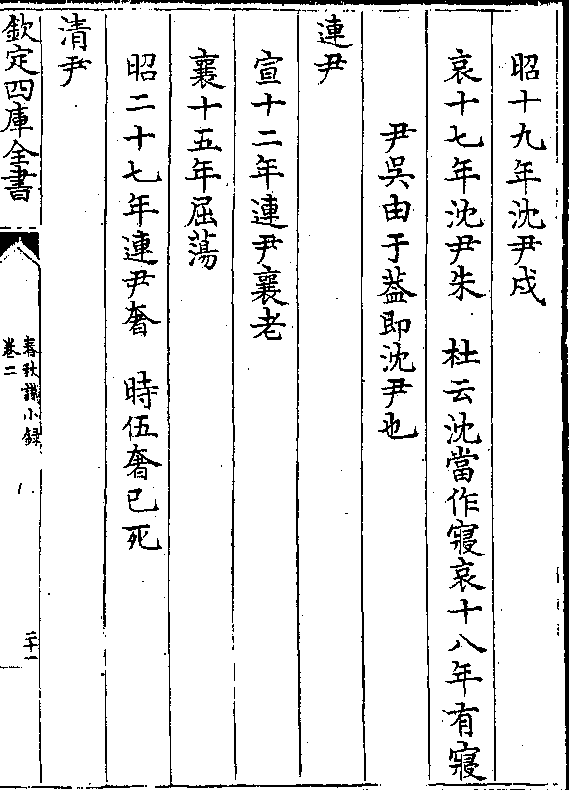 昭十九年沈尹戍
哀十七年沈尹朱　杜云沈當作寢哀十八年有寢
尹吳由于葢即沈尹也
連尹
宣十二年連尹襄老
襄十五年屈蕩
昭二十七年連尹奢　時伍奢已死
清尹
欽定四庫全書
春秋識小録
卷二
二十一